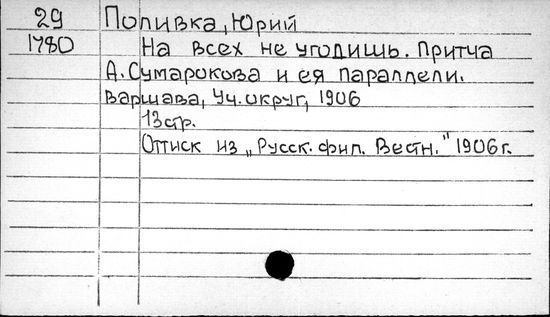 29 Поливка, Юрий
1780 На всех не угодишь. Притча
А. Сумарокова и ея параллели.
Варшава, Уч. округ, 1906
13 стр.
Оттиск из „Русск. фил. Вестн." 1906 г.